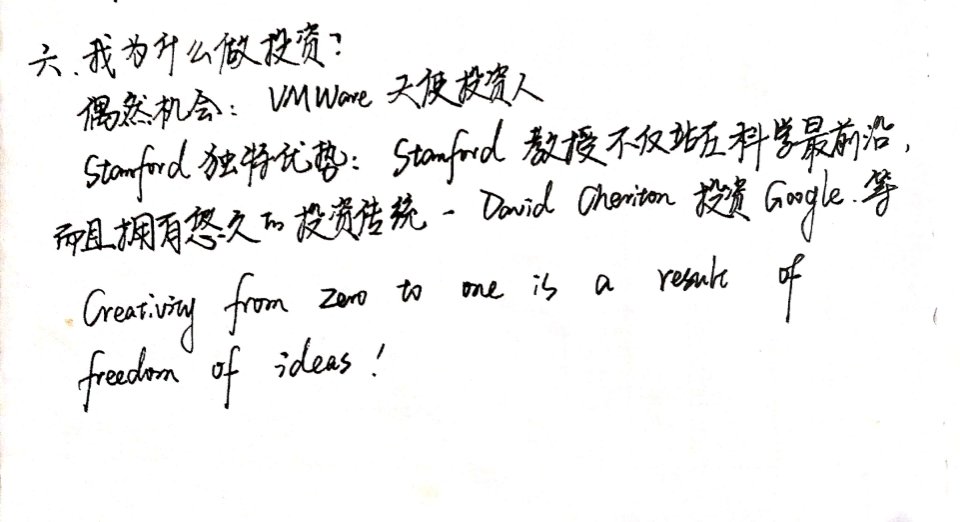 六.我为什么做投资?
偶然机会: VMWare 天使投资人
Stanford 独特优势: Stanford 教授不仅站在科学最前沿,
而且拥有悠久的投资传统 - David Cheriton 投资 Google.等
Creativity from zero to one is a result of
freedom of ideas!